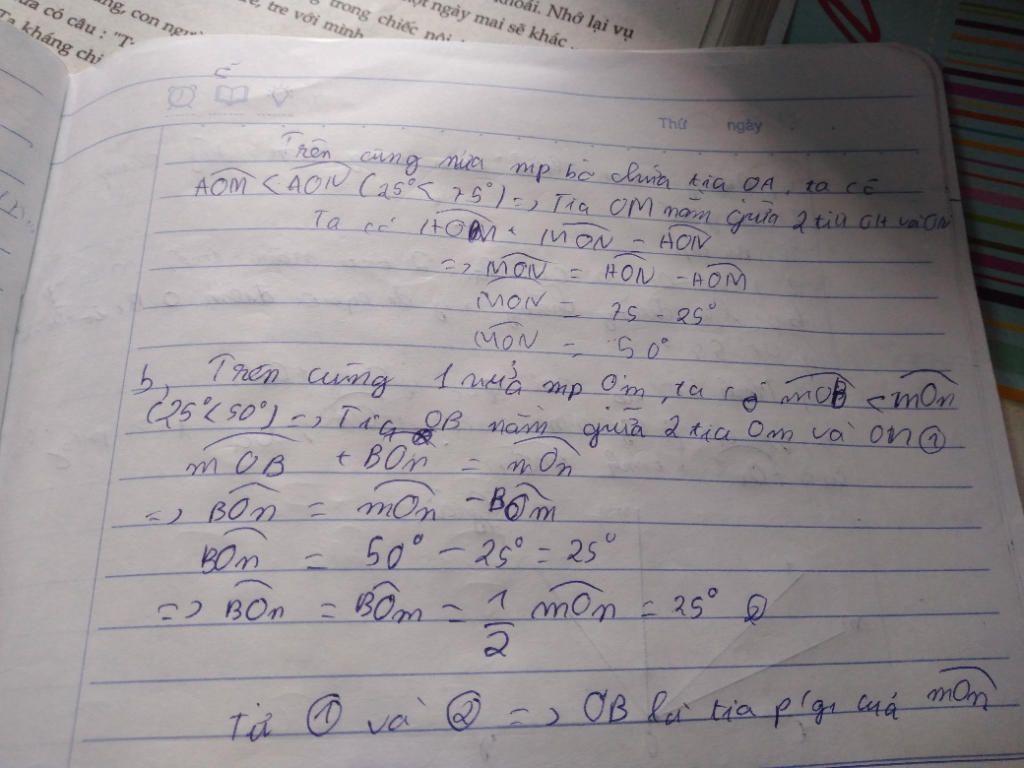 khoái. Nhớ lại vụ
ng, con người tre, tre với mình trong chiếc nôi ngày mai sẽ khác
ưa có câu : "T
Ta kháng chi
Thứ ngày
Trên cùng nửa mp bờ chứa tia OA, ta có
AOM < AON (25° < 75°) => Tia OM nằm giữa 2 tia OA và ON
Ta có AOM + MON = AON
=> MON = AON - AOM
MON = 75 - 25°
MON = 50°
b, Trên cùng 1 nửa mp Om, ta có mOB < mOn
(25° < 50°) => Tia OB nằm giữa 2 tia Om và On ①
mOB + BOn = mOn
=> BOn = mOn - BOm
BOn = 50° - 25° = 25°
=> BOn = BOm = 1/2 mOn = 25° ②
Từ ① và ② => OB là tia p/gi cuả mOn